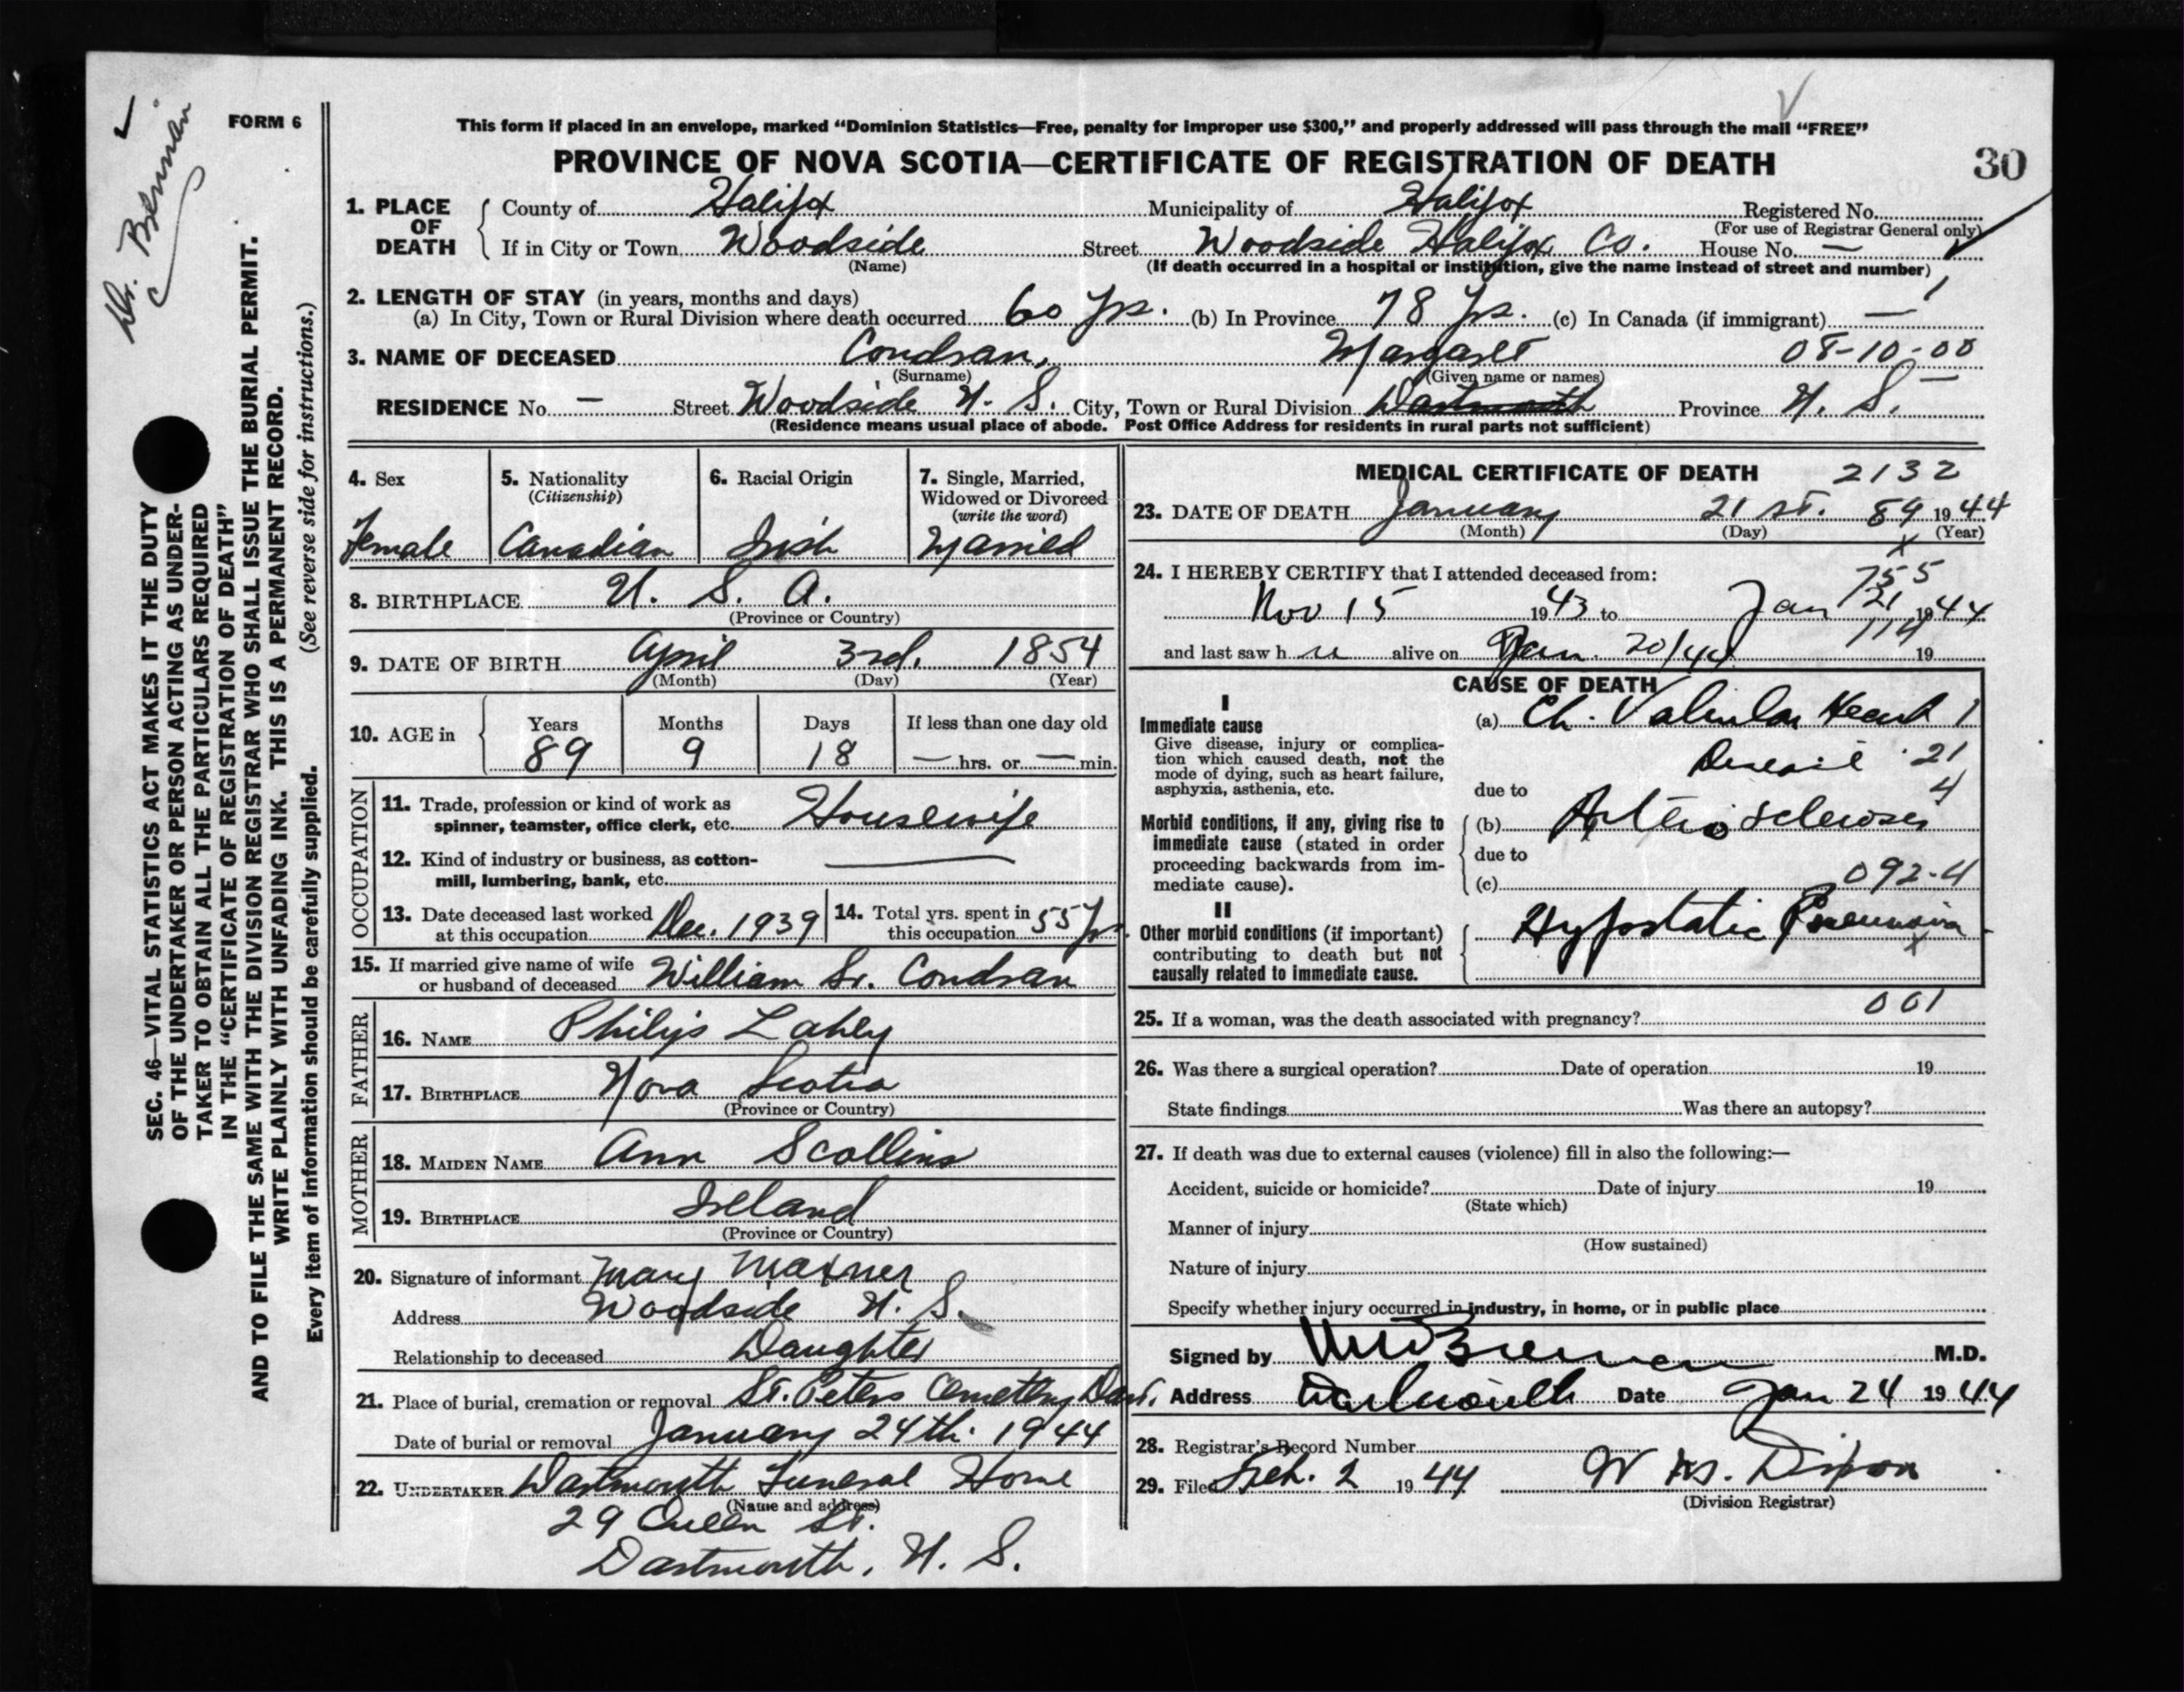 Dr. Brennan
FORM 6
SEC. 46—VITAL STATISTICS ACT MAKES IT THE DUTY
OF THE UNDERTAKER OR PERSON ACTING AS UNDER-
TAKER TO OBTAIN ALL THE PARTICULARS REQUIRED
IN THE "CERTIFICATE OF REGISTRATION OF DEATH"
AND TO FILE THE SAME WITH THE DIVISION REGISTRAR WHO SHALL ISSUE THE BURIAL PERMIT.
WRITE PLAINLY WITH UNFADING INK. THIS IS A PERMANENT RECORD.
Every item of information should be carefully supplied. (See reverse side for instructions.)
This form if placed in an envelope, marked "Dominion Statistics—Free, penalty for improper use $300," and properly addressed will pass through the mail "FREE"
PROVINCE OF NOVA SCOTIA—CERTIFICATE OF REGISTRATION OF DEATH 30
1. PLACE OF DEATH County of Halifax Municipality of Halifax Registered No.
(For use of Registrar General only)
If in City or Town Woodside Street Woodside Halifax Co. House No. —
(Name) (If death occurred in a hospital or institution, give the name instead of street and number)
2. LENGTH OF STAY (in years, months and days)
(a) In City, Town or Rural Division where death occurred 60 Yrs. (b) In Province 78 Yrs. (c) In Canada (if immigrant) —
3. NAME OF DECEASED Condran, Margaret 08-10-00
(Surname) (Given name or names)
RESIDENCE No. — Street Woodside N. S. City, Town or Rural Division Dartmouth Province N. S.
(Residence means usual place of abode. Post Office Address for residents in rural parts not sufficient)
4. Sex 5. Nationality (Citizenship) 6. Racial Origin 7. Single, Married, Widowed or Divorced (write the word)
Female Canadian Irish Married
8. BIRTHPLACE U. S. A.
(Province or Country)
9. DATE OF BIRTH April 3rd. 1854
(Month) (Day) (Year)
10. AGE in Years Months Days If less than one day old
89 9 18 — hrs. or — min.
OCCUPATION
11. Trade, profession or kind of work as
spinner, teamster, office clerk, etc. Housewife
12. Kind of industry or business, as cotton-
mill, lumbering, bank, etc.
13. Date deceased last worked
at this occupation Dec. 1939
14. Total yrs. spent in
this occupation 55 Yrs.
15. If married give name of wife
or husband of deceased William Sr. Condran
FATHER
16. NAME Philip Lahey
17. BIRTHPLACE Nova Scotia
(Province or Country)
MOTHER
18. MAIDEN NAME Ann Scollins
19. BIRTHPLACE Ireland
(Province or Country)
20. Signature of informant Mary Maxner
Address Woodside N. S.
Relationship to deceased Daughter
21. Place of burial, cremation or removal St. Peters Cemetery Dart.
Date of burial or removal January 24th. 1944
22. UNDERTAKER Dartmouth Funeral Home
(Name and address)
29 Queen St.
Dartmouth, N. S.
MEDICAL CERTIFICATE OF DEATH 2132
23. DATE OF DEATH January 21 st. 89 1944
(Month) (Day) (Year)
24. I HEREBY CERTIFY that I attended deceased from: 755
Nov 15 1943 to Jan 21 1944
114
and last saw h er alive on Jan. 20/44 19
CAUSE OF DEATH
I
Immediate cause
Give disease, injury or complica-
tion which caused death, not the
mode of dying, such as heart failure,
asphyxia, asthenia, etc.
(a) Ch. Valvular Heart 1
Disease 21
4
due to
Morbid conditions, if any, giving rise to
immediate cause (stated in order
proceeding backwards from im-
mediate cause).
(b) Arterio Sclerosis
due to
(c) 092-4
II
Other morbid conditions (if important)
contributing to death but not
causally related to immediate cause.
Hypostatic Pneumonia
001
25. If a woman, was the death associated with pregnancy?
26. Was there a surgical operation? Date of operation 19
State findings Was there an autopsy?
27. If death was due to external causes (violence) fill in also the following:—
Accident, suicide or homicide? Date of injury 19
(State which)
Manner of injury
(How sustained)
Nature of injury
Specify whether injury occurred in industry, in home, or in public place
Signed by Brennan M.D.
Address Dartmouth Date Jan 24 1944
28. Registrar's Record Number
29. Filed Feb. 2 1944 Dixon
(Division Registrar)